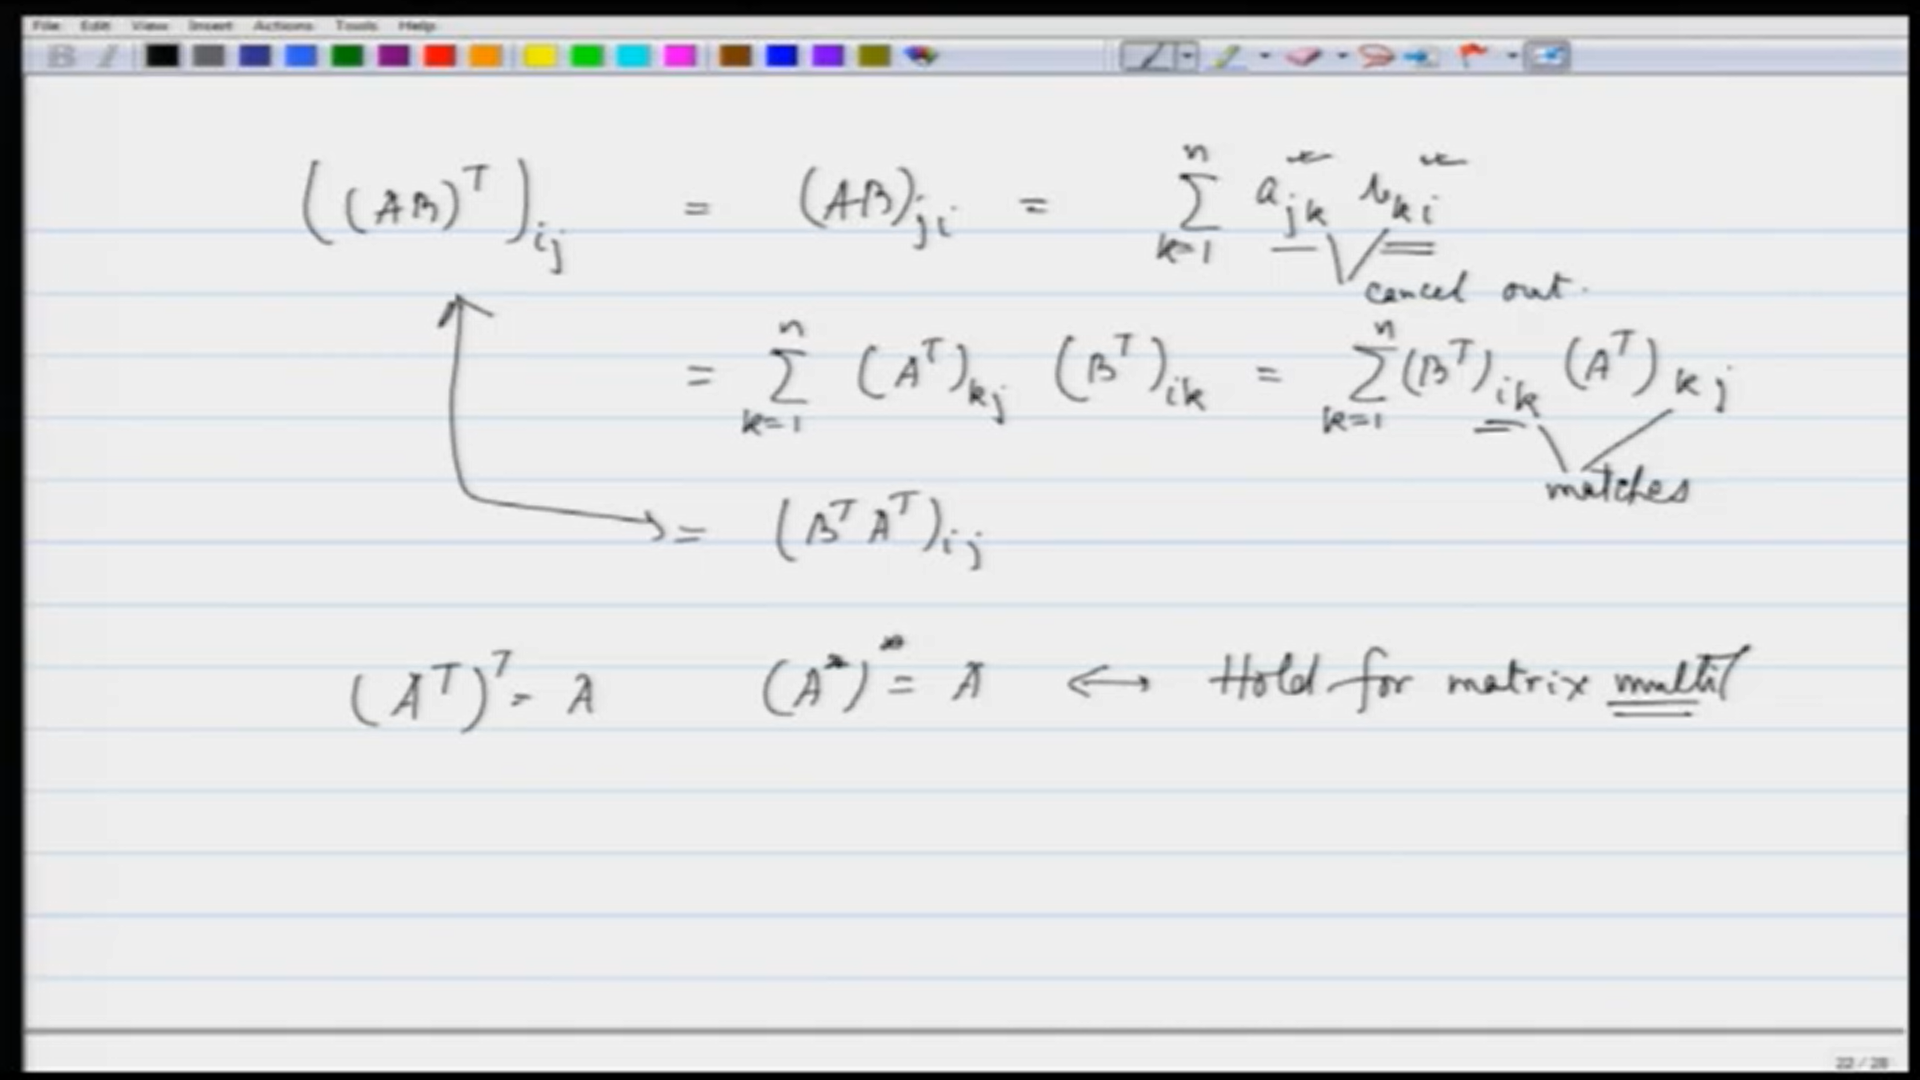 File Edit View Insert Actions Tools Help
((AB)^T)_{ij} = (AB)_{ji} = \sum_{k=1}^{n} a_{jk} b_{ki}
cancel out.
= \sum_{k=1}^{n} (A^T)_{kj} (B^T)_{ik} = \sum_{k=1}^{n} (B^T)_{ik} (A^T)_{kj}
matches
= (B^T A^T)_{ij}
(A^T)^T = A (A^*)^* = A ⟷ Hold for matrix multi
22 / 28